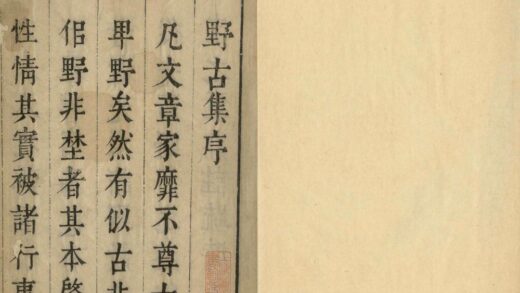 野古集序
凡文章家靡不尊
卑野矣然有似古
侣野非埜者其本
性情其實被諸行事